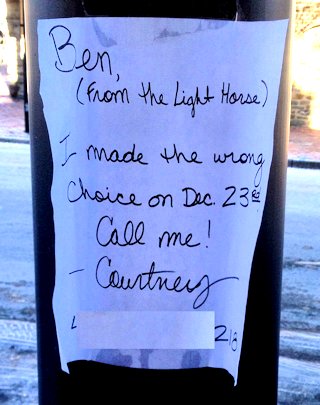 Ben,
(From the Light Horse)
I made the wrong
choice on Dec. 23rd.
Call me!
- Courtney
218